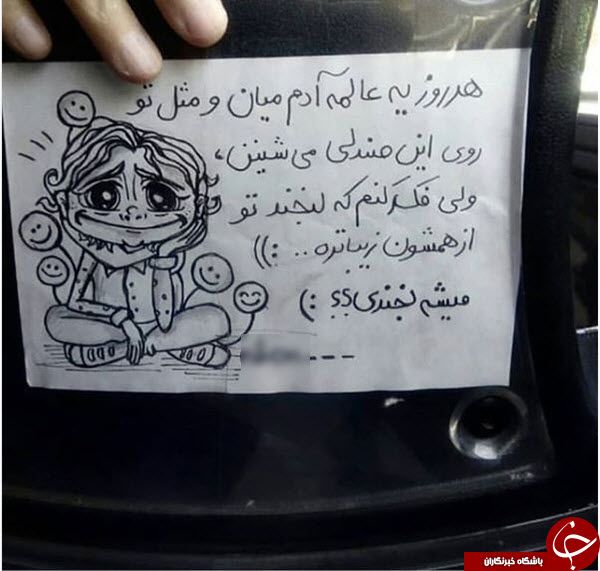 هرروز یه عالمه آدم میان و مثل تو
روی این صندلی می شینن،
ولی فکر کنم که لبخند تو
از همشون زیباتره .. :))
میشه بخندی؟؟ :)
باشگاه خبرنگاران